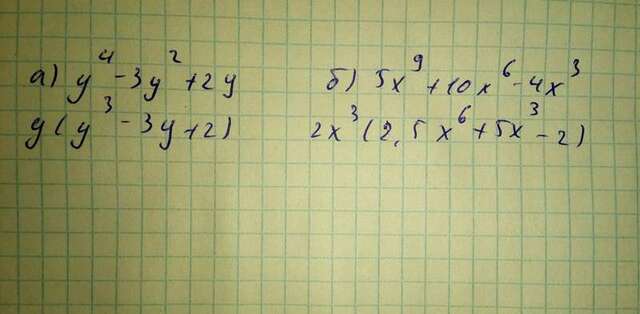 а) y⁴-3y²+2y
y(y³-3y+2)
б) 5x⁹+10x⁶-4x³
2x³(2,5x⁶+5x³-2)